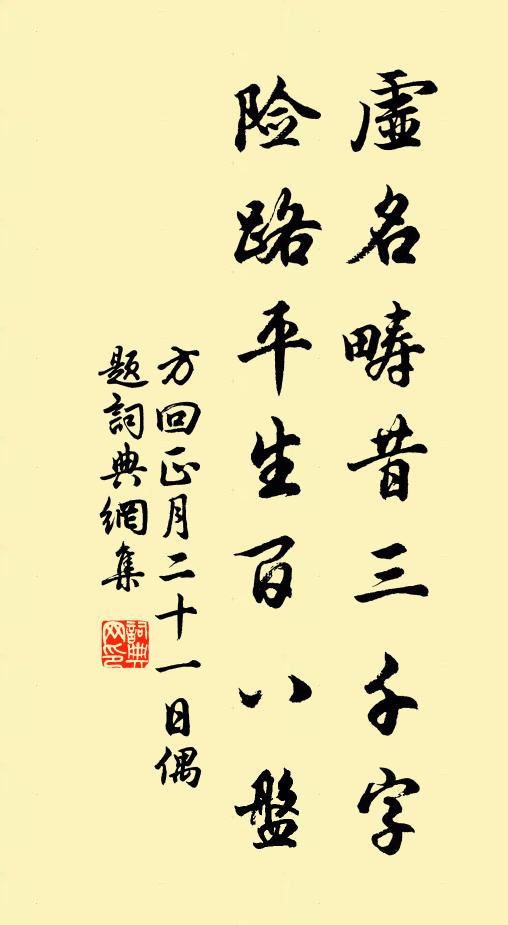 虛名畴昔三千字
险路平生百八盤
方回正月二十一日偶
題詞典網集
詞典網印